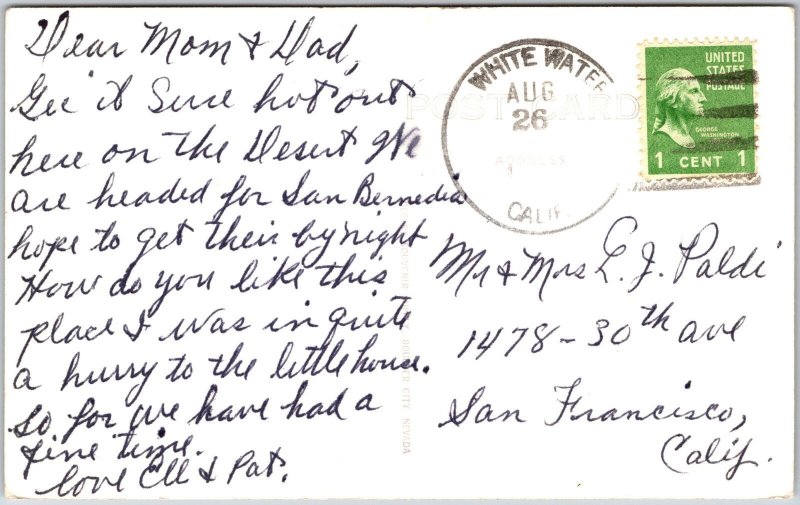 Dear Mom & Dad,
Gee it Sure hot out
here on the Desert We
are headed for San Bernedia
hope to get their by night
How do you like this
place I was in quite
a hurry to the little house.
So for we have had a
fine time.
love Ell & Pat.
POST CARD
ADDRESS
WHITE WATER
AUG
26
CALIF.
UNITED
STATES
POSTAGE
GEORGE
WASHINGTON
1 CENT 1
Mr & Mrs L. J. Paldi
1478 - 30th ave
San Francisco,
Calif.
BOULDER CITY, NEVADA